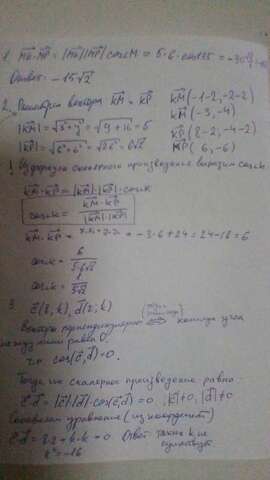 1. MK·MP = |MK||MP| cos∠M = 5·6·cos135 =
Ответ: -15√2
2. Рассмотрим векторы KM и KP
KM(-1-2, -2-2)
|KM| = √3²+4² = √9+16 = 5
KM(-3, -4)
KP(8-2, -4-2)
KP(6, -6)
Из формулы скалярного произведения выразим cos∠K
KM·KP = |KM|·|KP|·cos∠K
cos∠K = KM·KP / |KM|·|KP|
KM·KP = = -3·6+24 = 24-18 = 6
cos∠K = 6 / 5·6√2
cos∠K = 1 / 5√2
3.
Векторы перпендикулярны косинус угла
между ними равен 0.
cos(c,d) = 0.
Тогда их скалярное произведение равно:
c·d = |c||d|·cos(c,d) = 0 |c|≠0, |d|≠0
Составим уравнение (из координат)
k·k = 0 Ответ: таких k не
k² = -16 существует